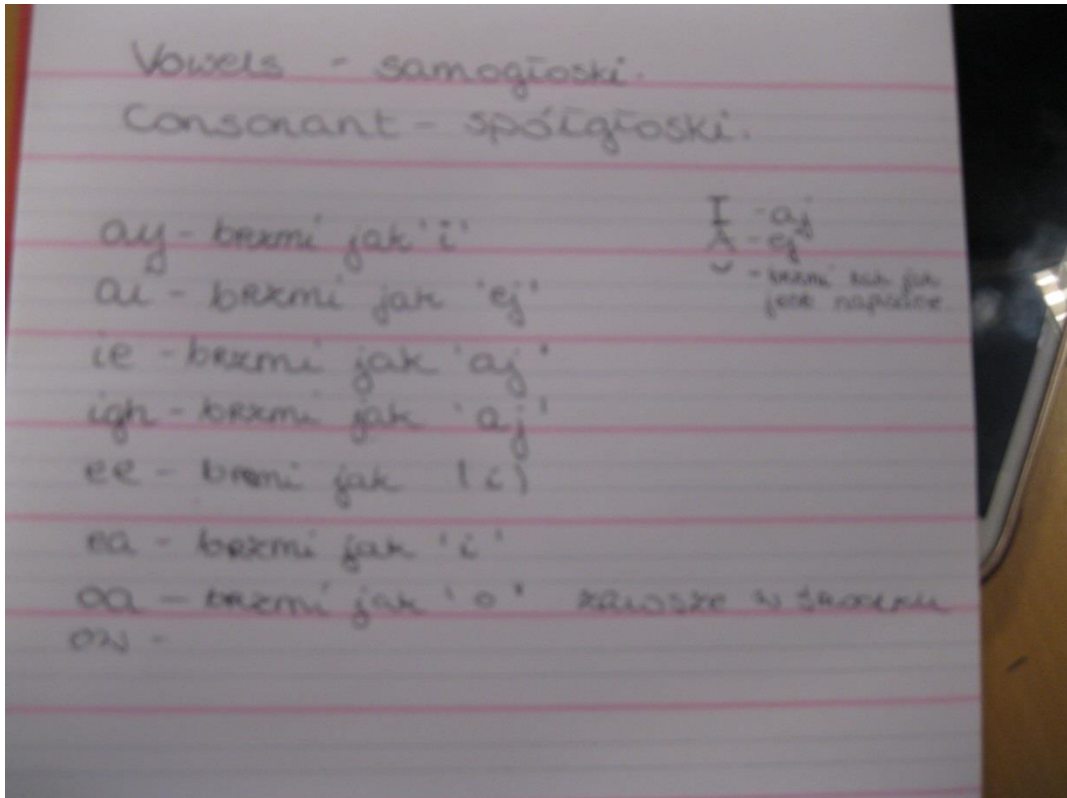 Vowels - samogłoski.
Consonant - spółgłoski.
ay - brzmi jak 'i'
ai - brzmi jak 'ej'
ie - brzmi jak 'aj'
igh - brzmi jak 'aj'
ee - brzmi jak 'i'
ea - brzmi jak 'i'
oa - brzmi jak 'o' zawsze w środku
ow -
I - aj
A - ej
˘ - brzmi tak jak
jest napisane